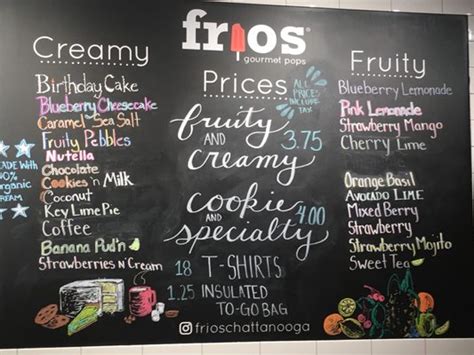 frios®
gourmet pops
Creamy
Birthday Cake
Blueberry Cheesecake
Caramel Sea Salt
Fruity Pebbles
Nutella
Chocolate
Cookies n Milk
Coconut
Key Lime Pie
Coffee
Banana Pud'n
Strawberries N Cream
MADE WITH
ORGANIC
CREAM
Prices
ALL
PRICES
INCLUDE
TAX
fruity
AND
creamy
3.75
cookie
AND
specialty
4.00
18 T-SHIRTS
1.25 INSULATED
TO-GO BAG
frioschattanooga
Fruity
Blueberry Lemonade
Pink Lemonade
Strawberry Mango
Cherry Lime
Orange Basil
AVOCADO LIME
Mixed Berry
Strawberry
Strawberry Mojito
Sweet Tea